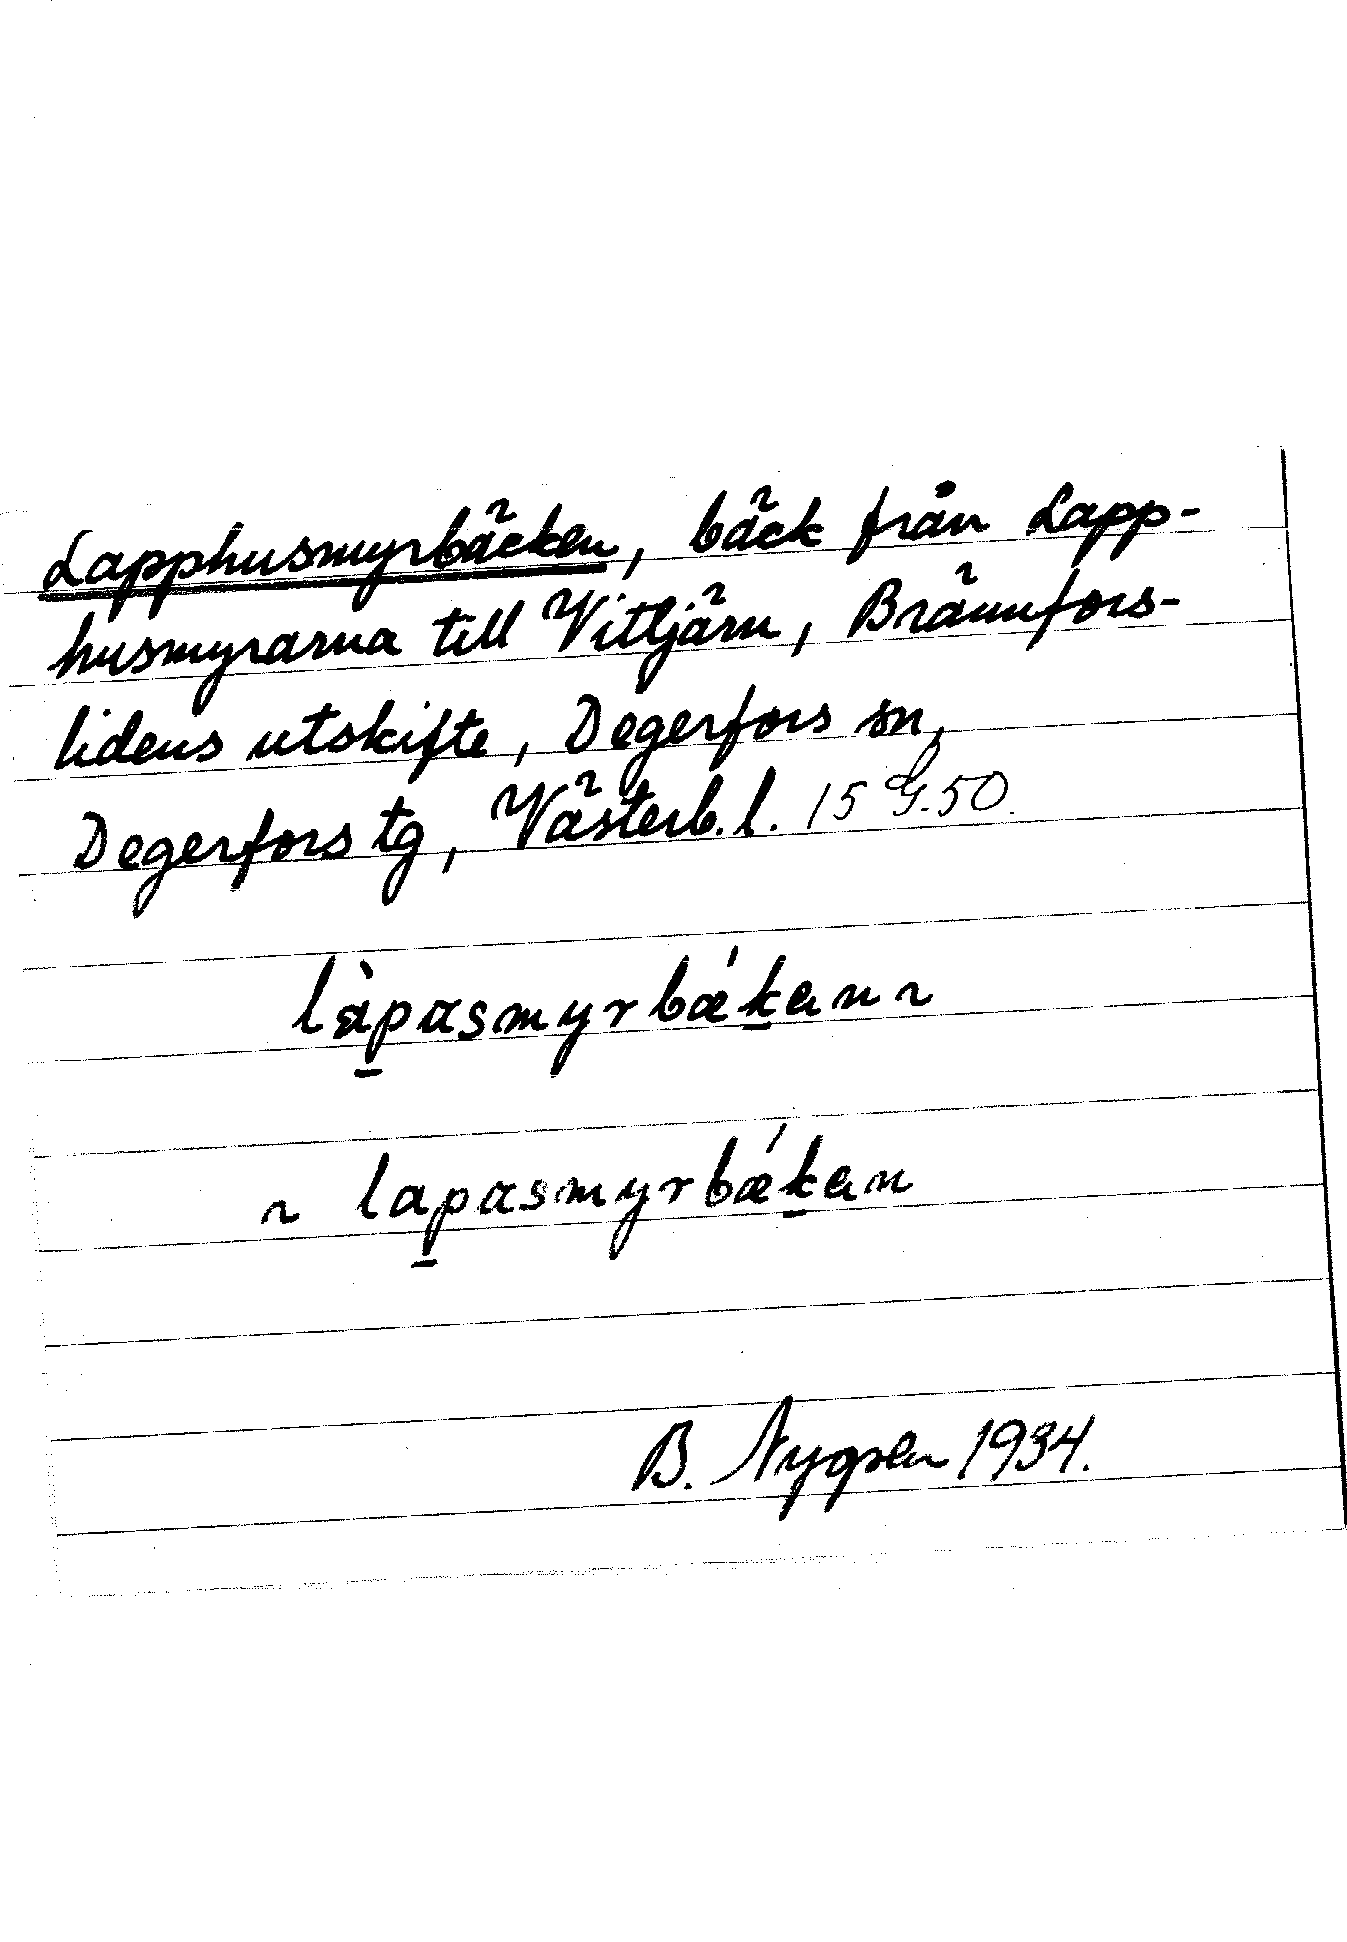 Lapphusmyrbäcken, bäck från Lapp-
husmyrarna till Vittjärn, Brännfors-
lidens utskifte, Degerfors sn,
Degerfors tg, Västerb. l. 15 G. 50.
l̀apasmyrbǽkan ~
~ lapasmyrbǽkan
B. Nygren 1934.